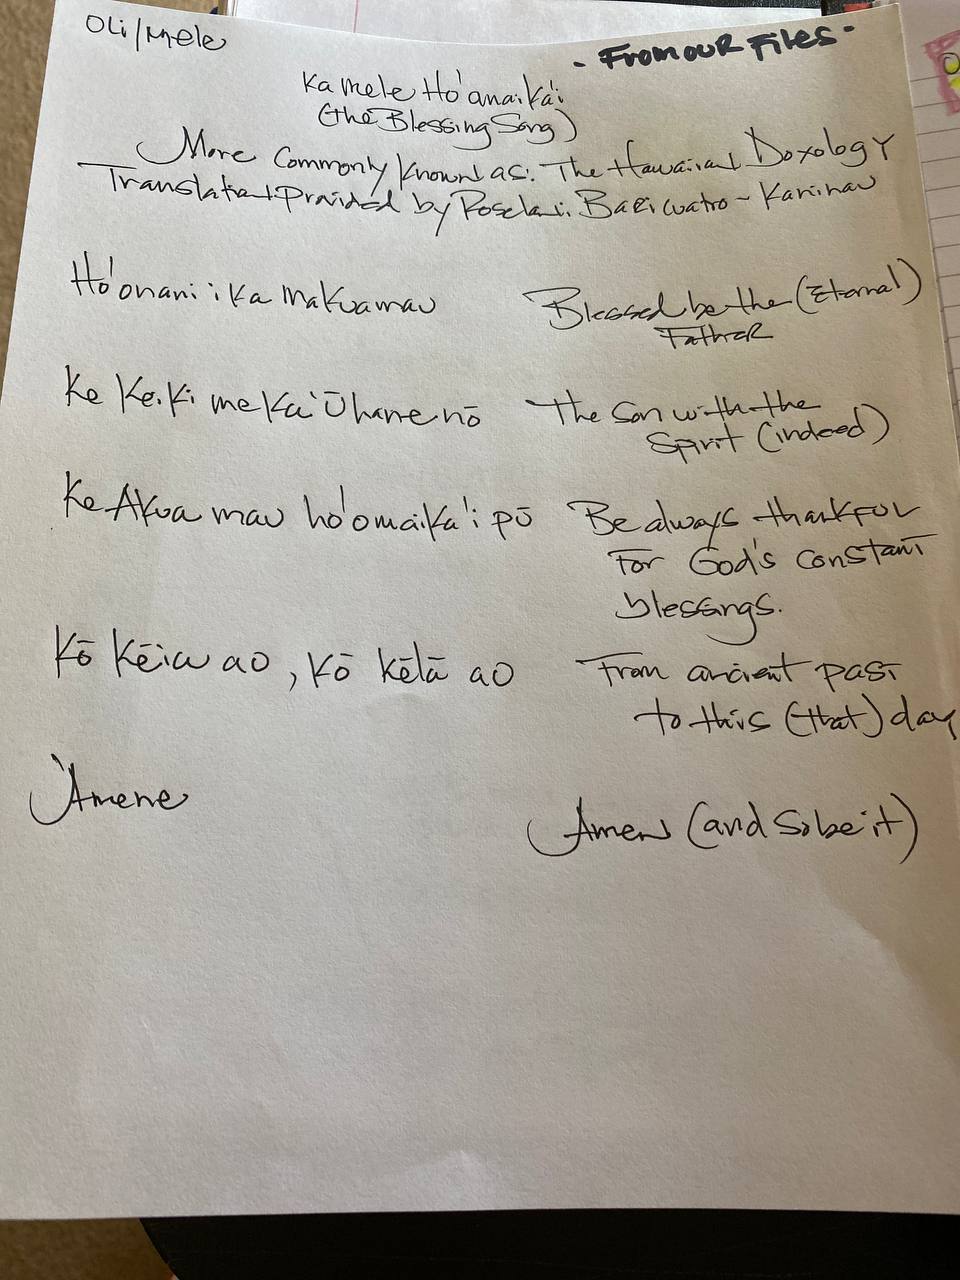 Oli/Mele
- From our Files -
Ka mele Ho'anaika'i
(the Blessing Song)
More Commonly Known as: The Hawaiian Doxology
Translation provided by Roselani
Ho'onani i ka Makua mau
Blessed be the (Eternal)
Father
Ke Keiki me ka 'Ūhane nō
The Son with the
Spirit (indeed)
Ke Akua mau ho'omaika'i pū
Be always thankful
For God's constant
blessings.
Kō kēia ao, kō kēlā ao
From ancient past
to this (that) day
'Amene
Amen (and So be it)